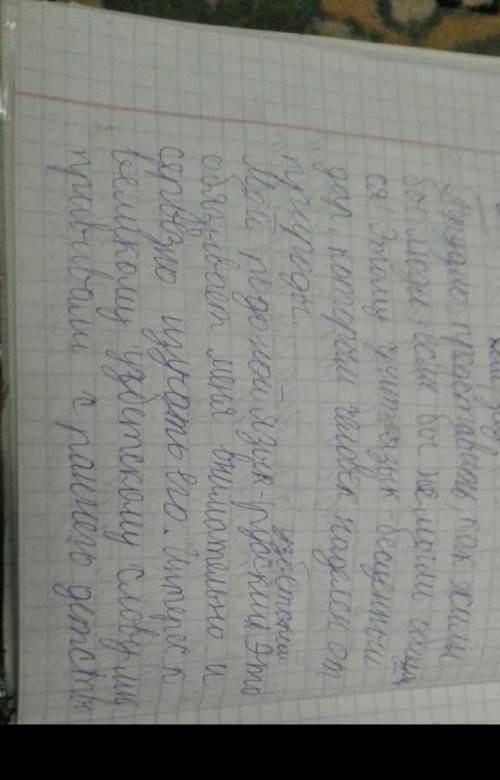 Трудно представить, как жили
бы люди, если бы не могли общать
ся. Этому учит язык бесценный
дар, которым человек наделён от
природы.
узбекский
Мой родной язык - русский. Это
обязывает меня внимательно и
серьёзно изучать его. Интерес к
великому узбекскому слову мне
прививали с раннего детства